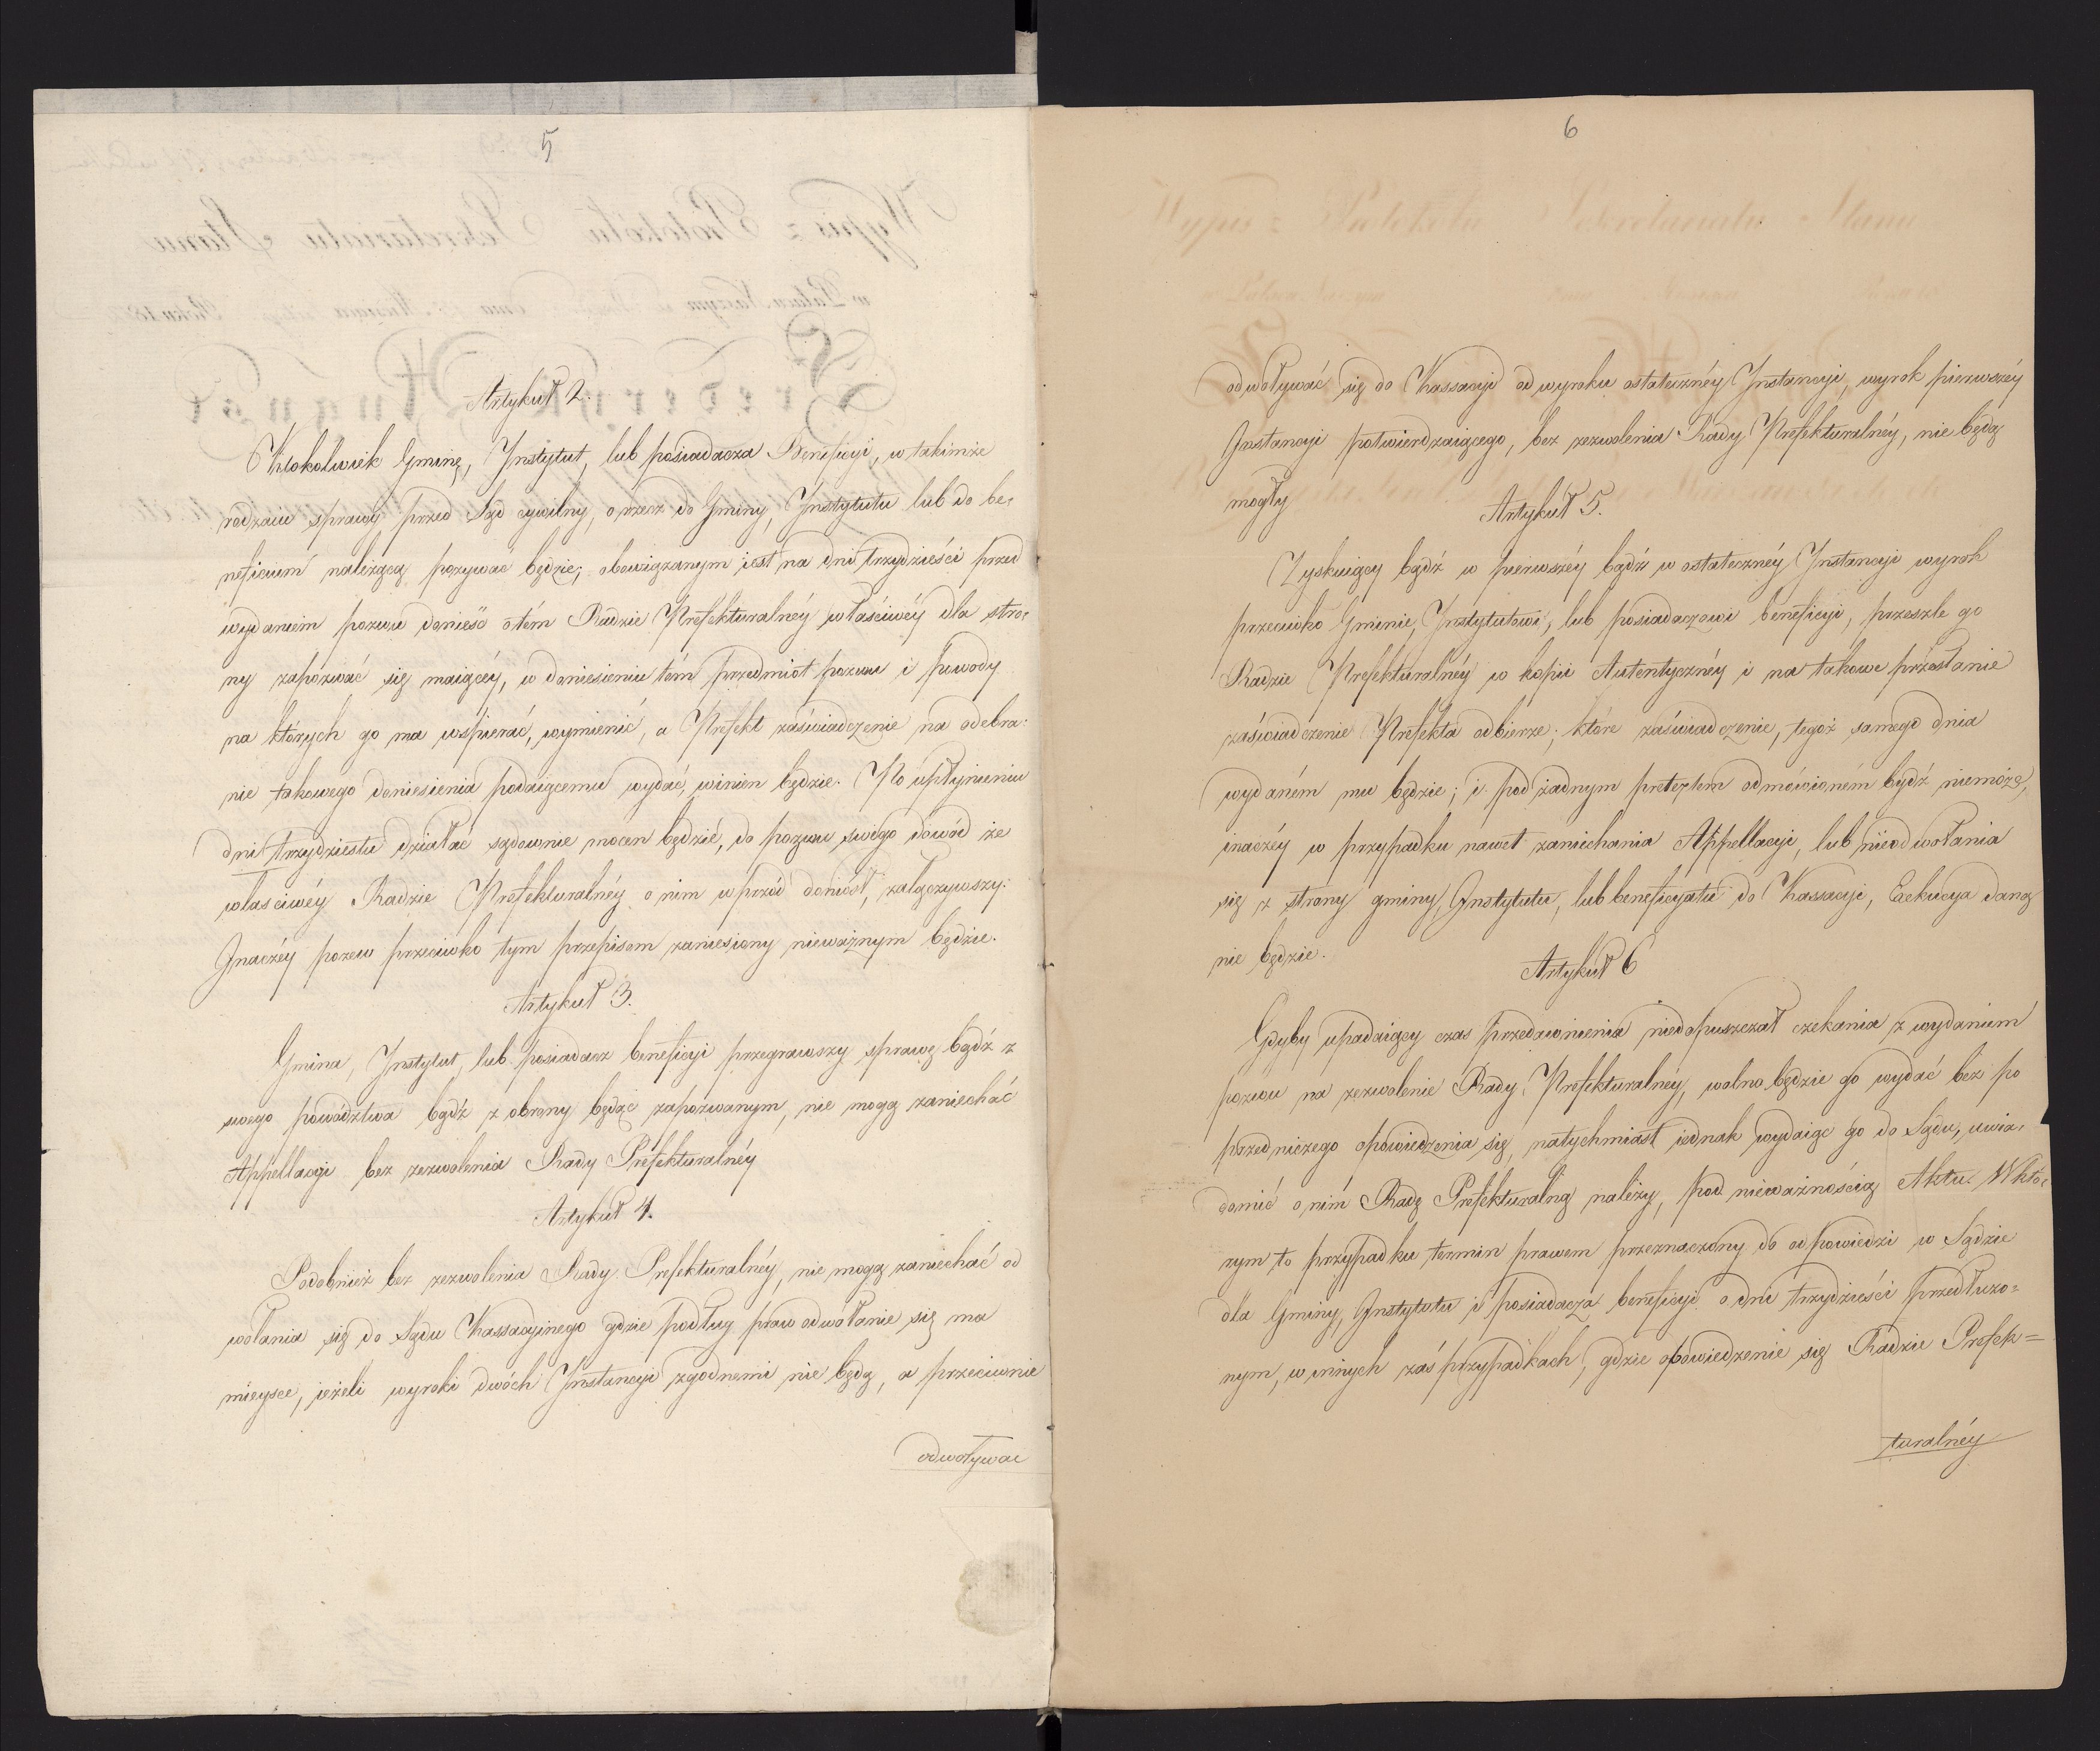 5
Artykuł 2.
Ktokolwiek Gminę, Instytut, lub posiadacza Beneficyi, w takimże
rodzaiu sprawy przed Sąd cywilny, o rzecz do Gminy, Instytutu lub do be=
neficium należącą pozywać będzie; obowiązanym iest na dni trzydzieści przed
wydaniem pozwu donieść o tém Radzie Prefekturalnéy właściwéy dla stro=
ny zapózwać się maiącéy, w doniesieniu tém przedmiot pozwu i powody
na których go ma wspierać, wymienić, a Prefekt zaświadczenie na odebra=
nie takowego doniesienia podaiącemu wydać, winien będzie. Po upłynieniu
dni trzydziestu działać sądownie mocen będzie, do pozwu swego dowód że
właściwéy Radzie Prefekturalnéy o nim wprzód doniósł, załączywszy.
Inaczéy pozew przeciwko tym przepisom zaniesiony nieważnym będzie.
Artykuł 3.
Gmina, Instytut, lub posiadacz beneficyi przegrawszy sprawę bądź z
swego powództwa bądź z obrony będąc zapozwanym, nie mogą zaniechać
Appellacyi bez zezwolenia Rady Prefekturalnéy
Artykuł 4.
Podobnież bez zezwolenia Rady Prefekturalnéy, nie mogą zaniechać od
wołania się do Sądu Kassacyinego gdzie podług praw odwołanie się ma
mieysce, ieżeli wyroki dwóch Instancyi zgodnemi nie będą, a przeciwnie
odwoływac
6
odwoływać się do Kassacyi od wyroku ostatecznéy Instancyi, wyrok pierwszéy
Instancyi potwierdzaiącego, bez zezwolenia Rady Prefekturalnéy, nie będą
mogły
Artykuł 5.
Zyskuiący bądź w pierwszéy bądź w ostatecznéy Instancyi wyrok
przeciwko Gminie, Instytutowi, lub posiadaczowi beneficyi, przeszle go
Radzie Prefekturalnéy w kopii Autentycznéy i na takowe przesłanie
zaświadczenie Prefekta odbierze; które zaświadczenie, tegoż samego dnia
wydaném mu będzie; i pod żadnym pretextem odmówioném bydź niemoże,
inaczéy w przypadku nawet zaniechania Appellacyi, lub nieodwołania
się z strony gminy, Instytutu, lub beneficyatu do Kassacyi, Exekucya daną
nie będzie.
Artykuł 6
Gdyby upadaiący czas przedawnienia niedopuszczał czekania z wydaniem
pozwu na zezwolenie Rady Prefekturalnéy, wolno będzie go wydać bez po
przedniczego opowiedzenia się, natychmiast iednak wydaiąc go do Sądu, uwia=
domić o nim Radę Prefekturalną należy, pod nieważnością Aktu. W któ=
rym to przypadku termin prawem przeznaczony do odpowiedzi w Sądzie
dla Gminy, Instytutu i posiadacza beneficyi o dni trzydzieści przedłużo=
nym, w innych zaś przypadkach, gdzie opowiedzenie się Radzie Prefek=
turalnéy